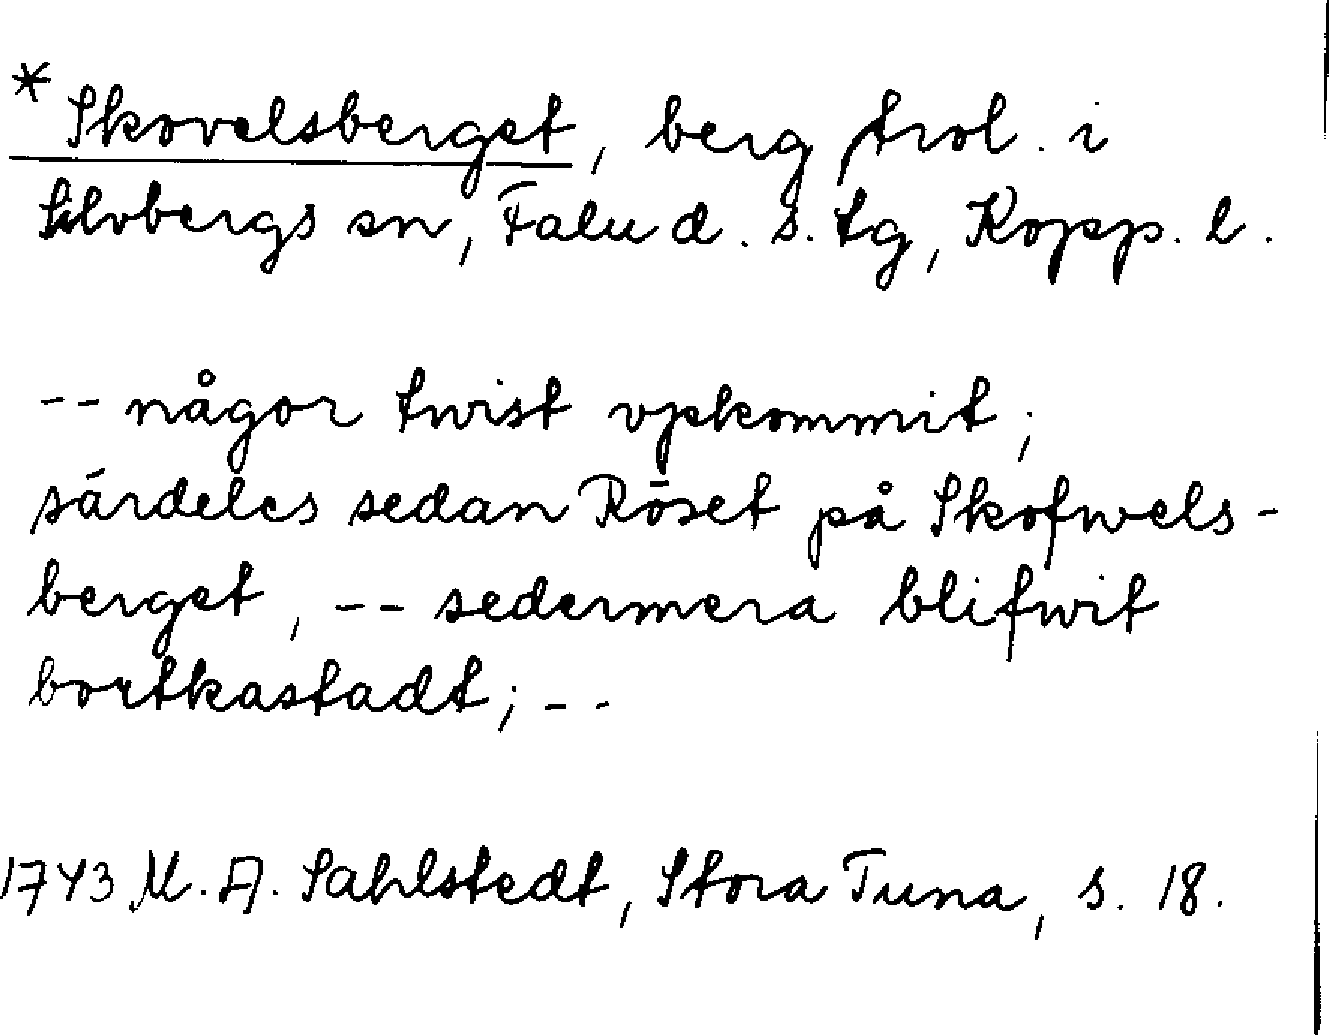 * Skovelsberget, berg trol. i
Silvbergs sn, Falu d. s. tg, Kopp. l.
-- någor twist vpkommit;
särdeles sedan Röset på Skofwels-
berget, -- sedermera blifwit
bortkastadt; --
1743 M. A. Sahlstedt, Stora Tuna, s. 18.